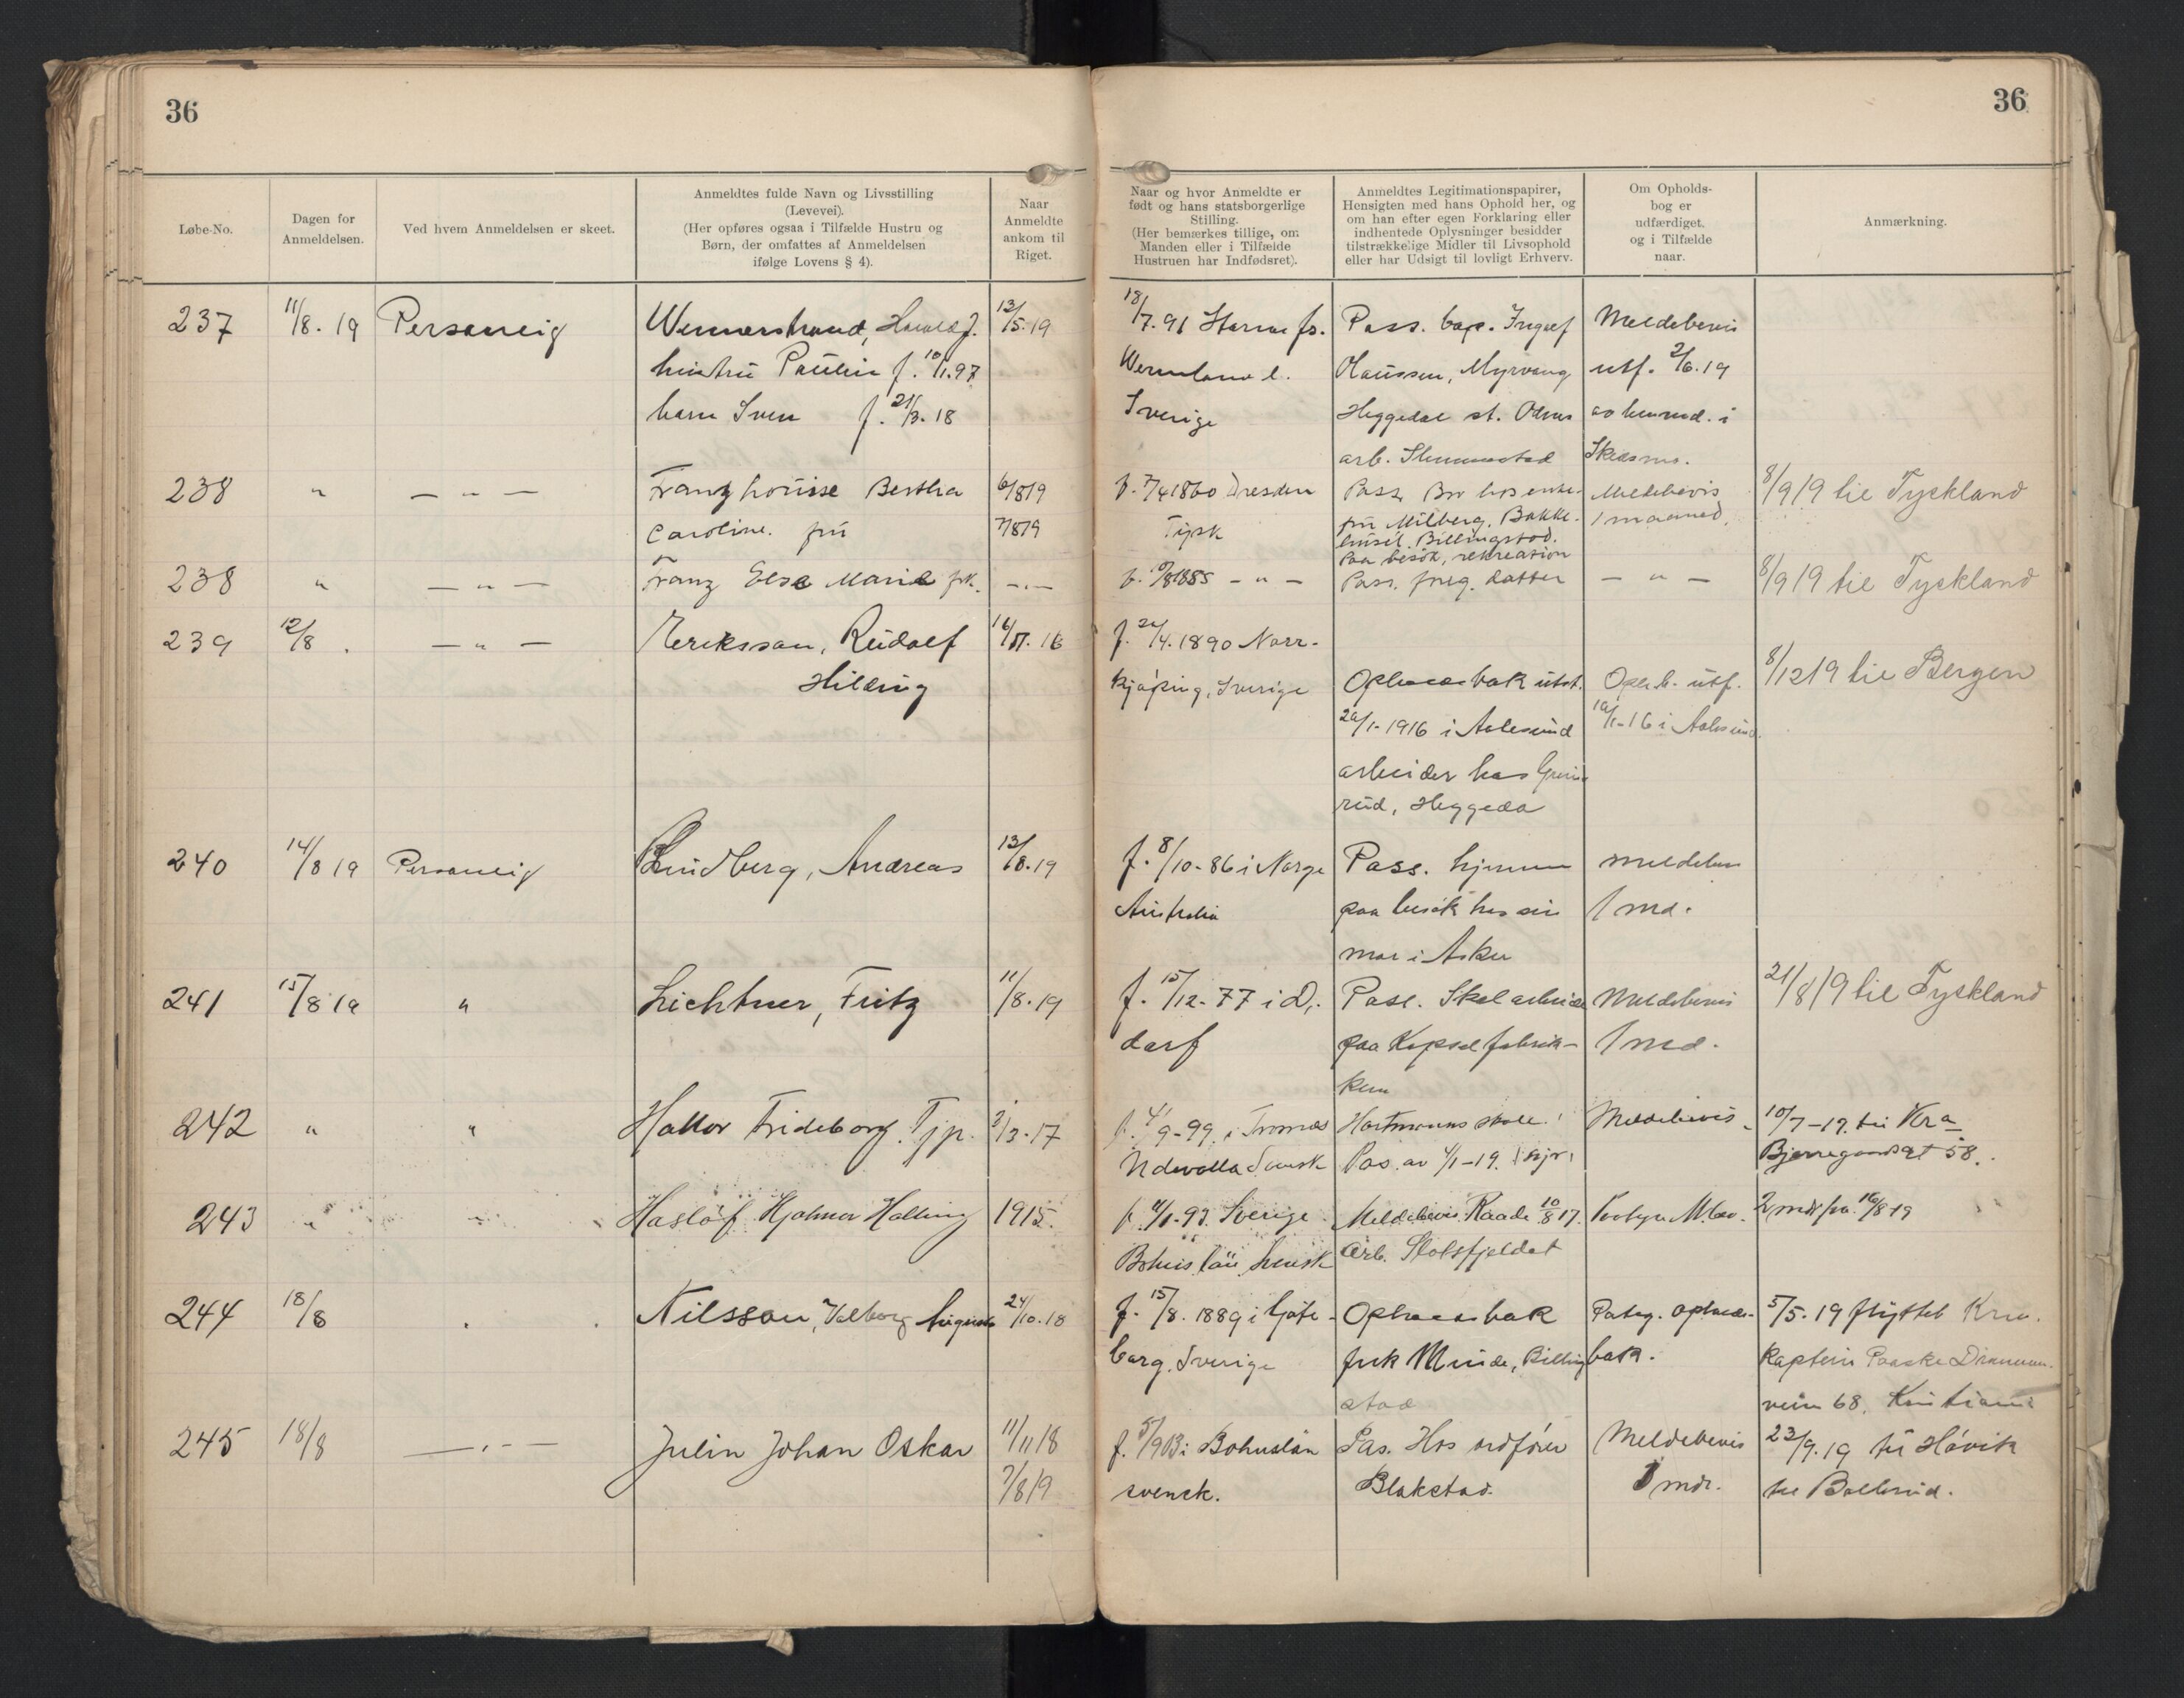 36
36
Løbe-No.
Dagen for
Anmeldelsen.
Ved hvem Anmeldelsen er skeet.
Anmeldtes fulde Navn og Livsstilling
(Levevei).
(Her opføres ogsaa i Tilfælde Hustru og
Børn, der omfattes af Anmeldelsen
ifølge Lovens § 4).
Naar
Anmeldte
ankom til
Riget.
Naar og hvor Anmeldte er
født og hans statsborgerlige
Stilling.
(Her bemærkes tillige, om
Manden eller i Tilfælde
Hustruen har Indfødsret).
Anmeldtes Legitimationspapirer,
Hensigten med hans Ophold her, og
om han efter egen Forklaring eller
indhentede Oplysninger besidder
tilstrækkelige Midler til Livsophold
eller har Udsigt til lovligt Erhverv.
Om Opholds-
bog er
udfærdiget,
og i Tilfælde
naar.
Anmærkning.
237 11/8. 19 Personlig Wennerstrand, Harald J. 13/5. 19 18/7. 91 Pass. Meldebevis
hustru Paulin f. 10/1. 97 Wermland l. Myrvang utf. 2/6. 19
barn Sven f. 21/3. 18 Sverige Heggedal st. i
arb. Slemmestad Skedsmo.
238 " — " — Franz Louise Bertha 6/819 f. 7/4 1860 Dresden Pass. Bor hos enke- Meldebevis 8/919 til Tyskland
Caroline. fru 7/819 Tysk fru Milberg. Bakke- 1 maaned.
huset. Billingstad.
Paa besøk, rekreation
238 " — " — Franz Else Marie frk. — " — f. 9/8 1885 — " — Pass. foreg. datter — " — 8/919 til Tyskland
239 12/8. — " — Eriksson, Rudolf 16/ 16 f. 24/4. 1890 Norr-
Hilding kjøping, Sverige Opholdsbok utst. Oph.b. utf. 8/1219 til Bergen
20/1-1916 i Aalesund 19/1-16 i Aalesund.
arbeider hos
rud, Heggeda
240 14/8 19 Personlig Lundberg, Andreas 13/8. 19 f. 8/10-86 i Norge Pass. hjemme meldebev
Australia paa besøk hos sin 1 md.
mor i Asker
241 15/8 19 " Lichtner, Fritz 11/8. 19 f. 15/12-77 i D. Pass. Skal arbeide Meldebevis 21/819 til Tyskland
dorf paa Kapselfabrik- 1 md.
ken
242 " " Hallor Frideborg. Tjp. 2/3-17 f. 4/9-99. i Hartmanns Meldebevis. 10/7-19. til Kra
Udevalla Svensk Pas. av 4/1-19. Bjerregaardsgt 58.
243 " " Hasløf Hjalmar Halling 1915. f. 4/1-93. Sverige Meldebevis Raade 10/8 17. 2 mdr fra 16/8 19
Bohuslän svensk Arb. Stolsfjeldet
244 18/8 . Nilsson, Valborg Augusta 24/10. 18 f. 15/8. 1889 i Gøte- Opholdsbok Pateg. opholds- 5/5. 19 flyttet Kra.
borg. Sverige frk Munde, Billing bok. Kaptein Paaske Drammen-
stad veien 68. Kristiania
245 18/8 — " — Julin Johan Oskar 11/1118 f. 5/903 i Bohuslän Pas. Hos ordfører Meldebevis 23/9. 19 til Høvik
7/819 svensk. Blakstad. mdr. til Ballerud.